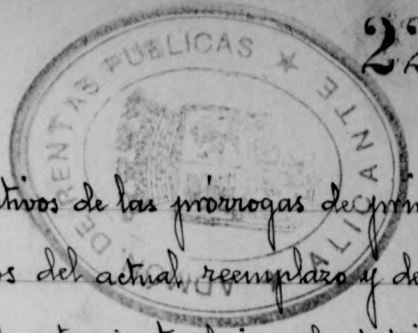 22
ADMON. DE RENTAS PUBLICAS ★ ALICANTE
tivos de las prórrogas de prim
os del actual reemplazo y de